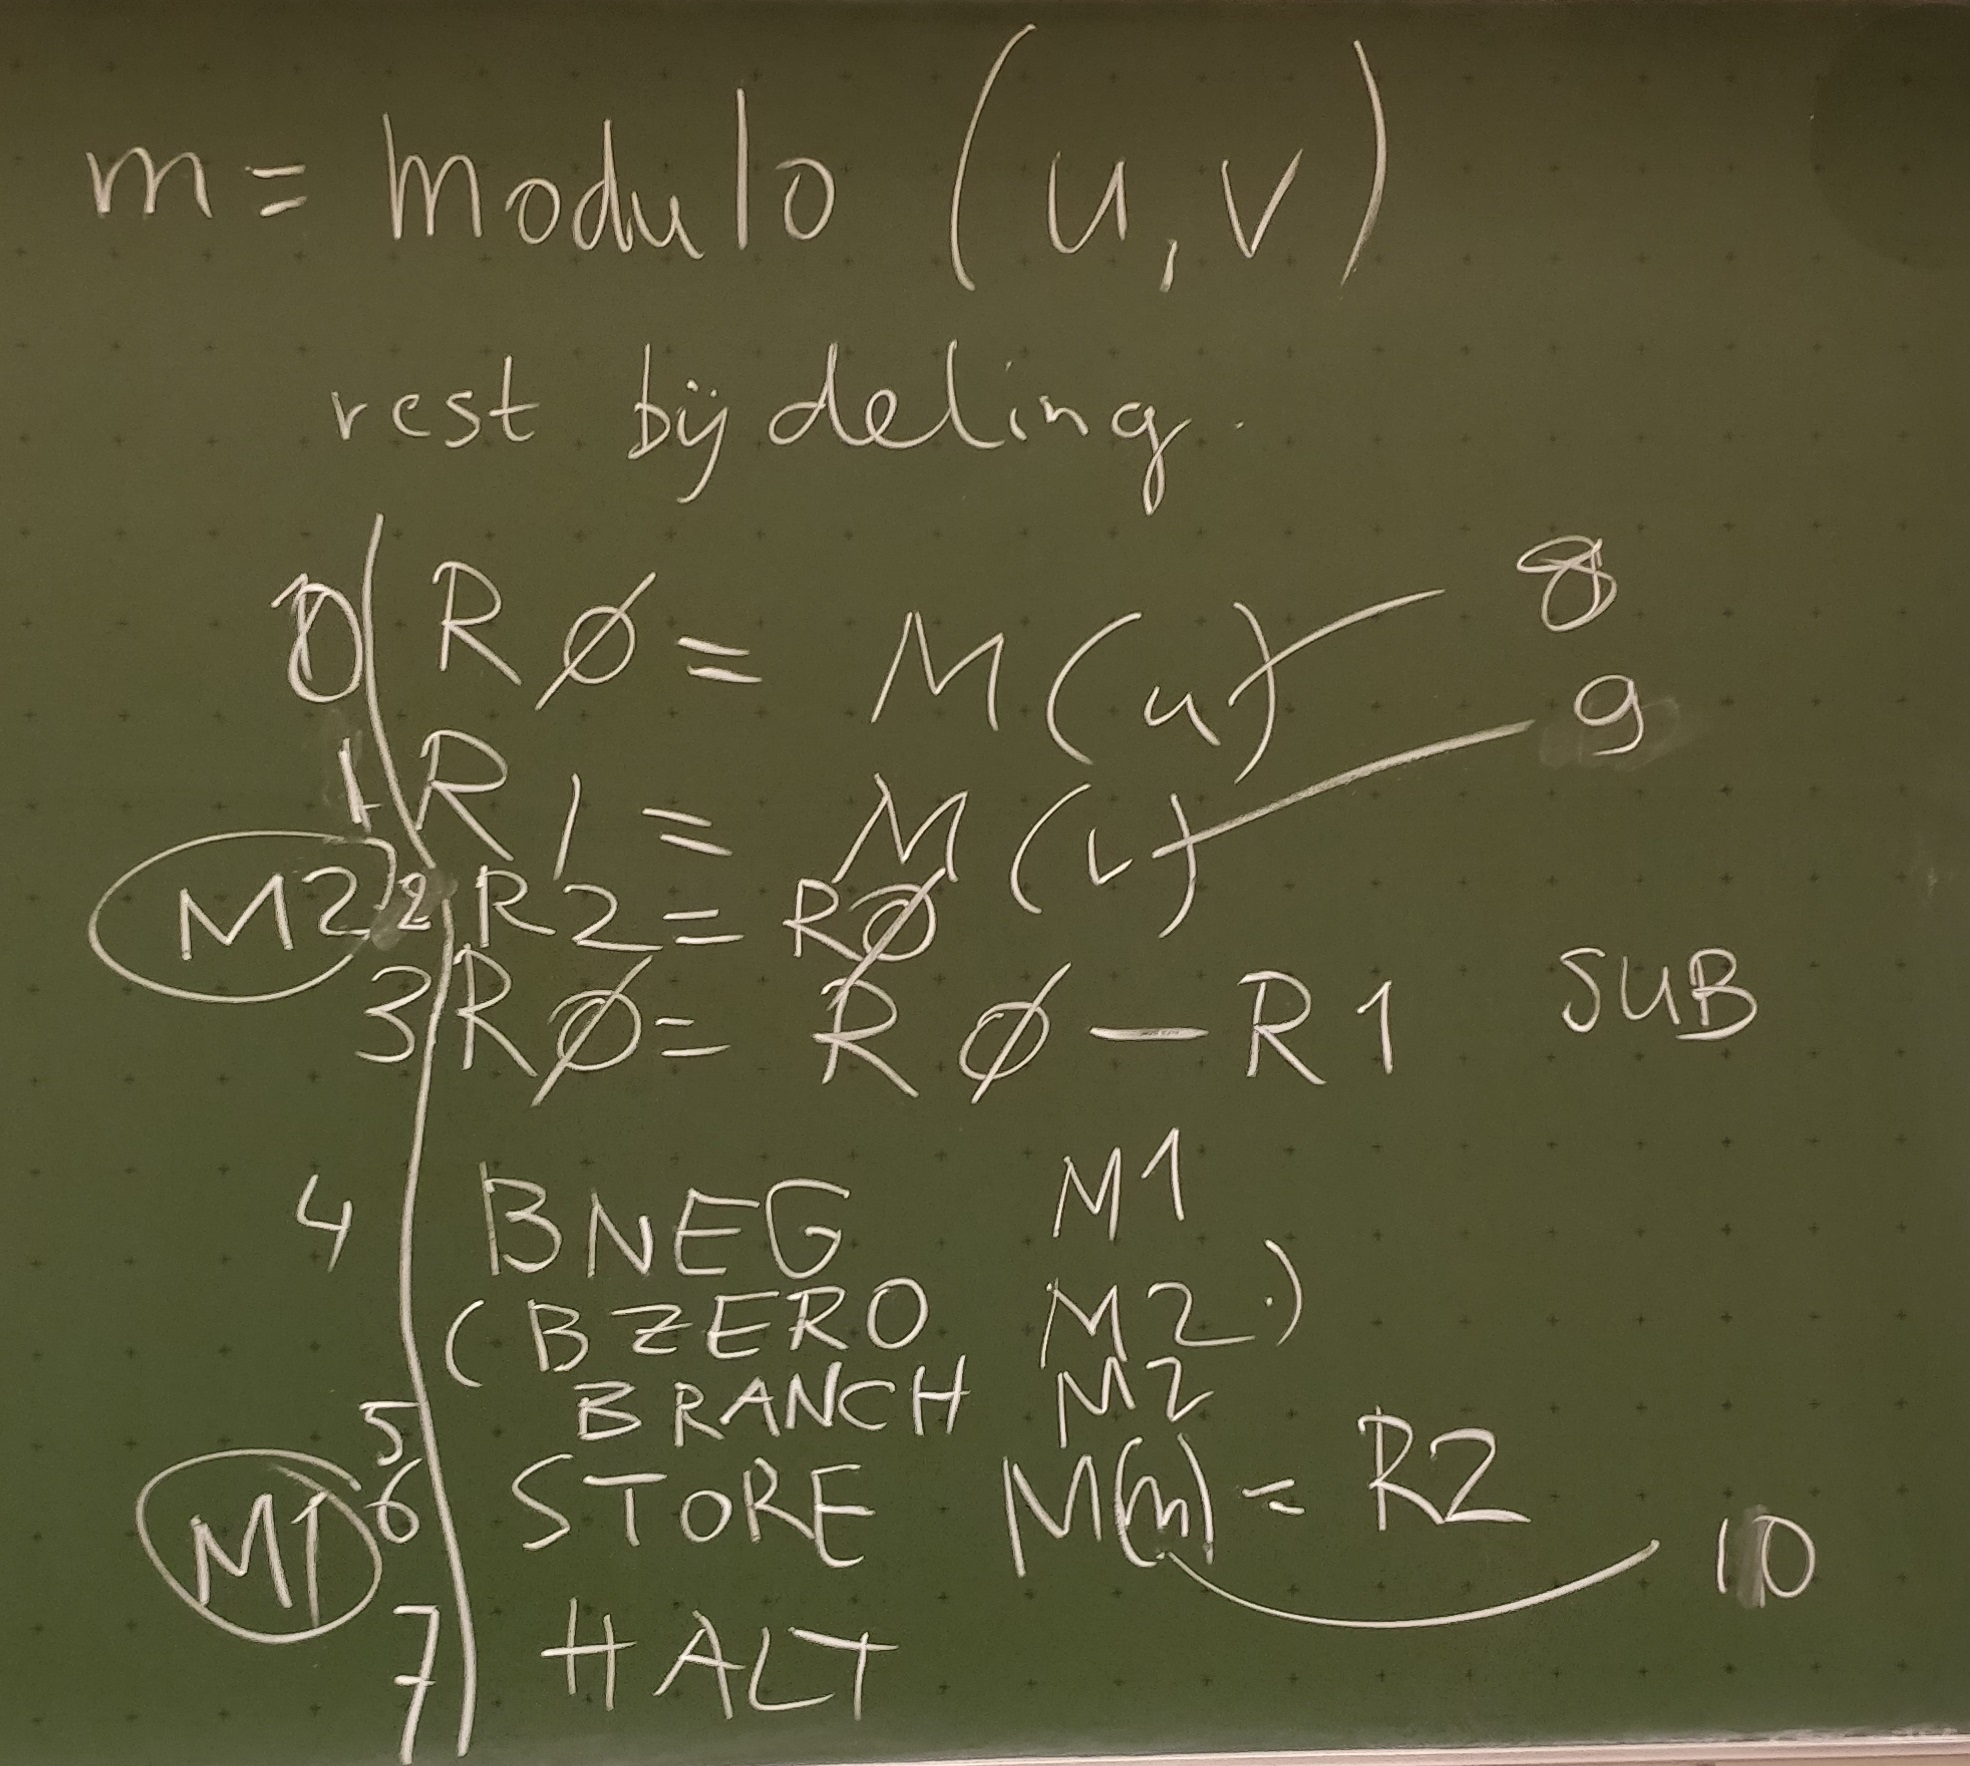 m = modulo (u, v)
rest bij deling.
0 RØ = M(u) 8
1 R1 = M(v) 9
M2 2 R2 = RØ
3 RØ = RØ - R1 SUB
4 BNEG M1
(BZERO M2.)
5 BRANCH M2
M1 6 STORE M(m) = R2 10
7 HALT